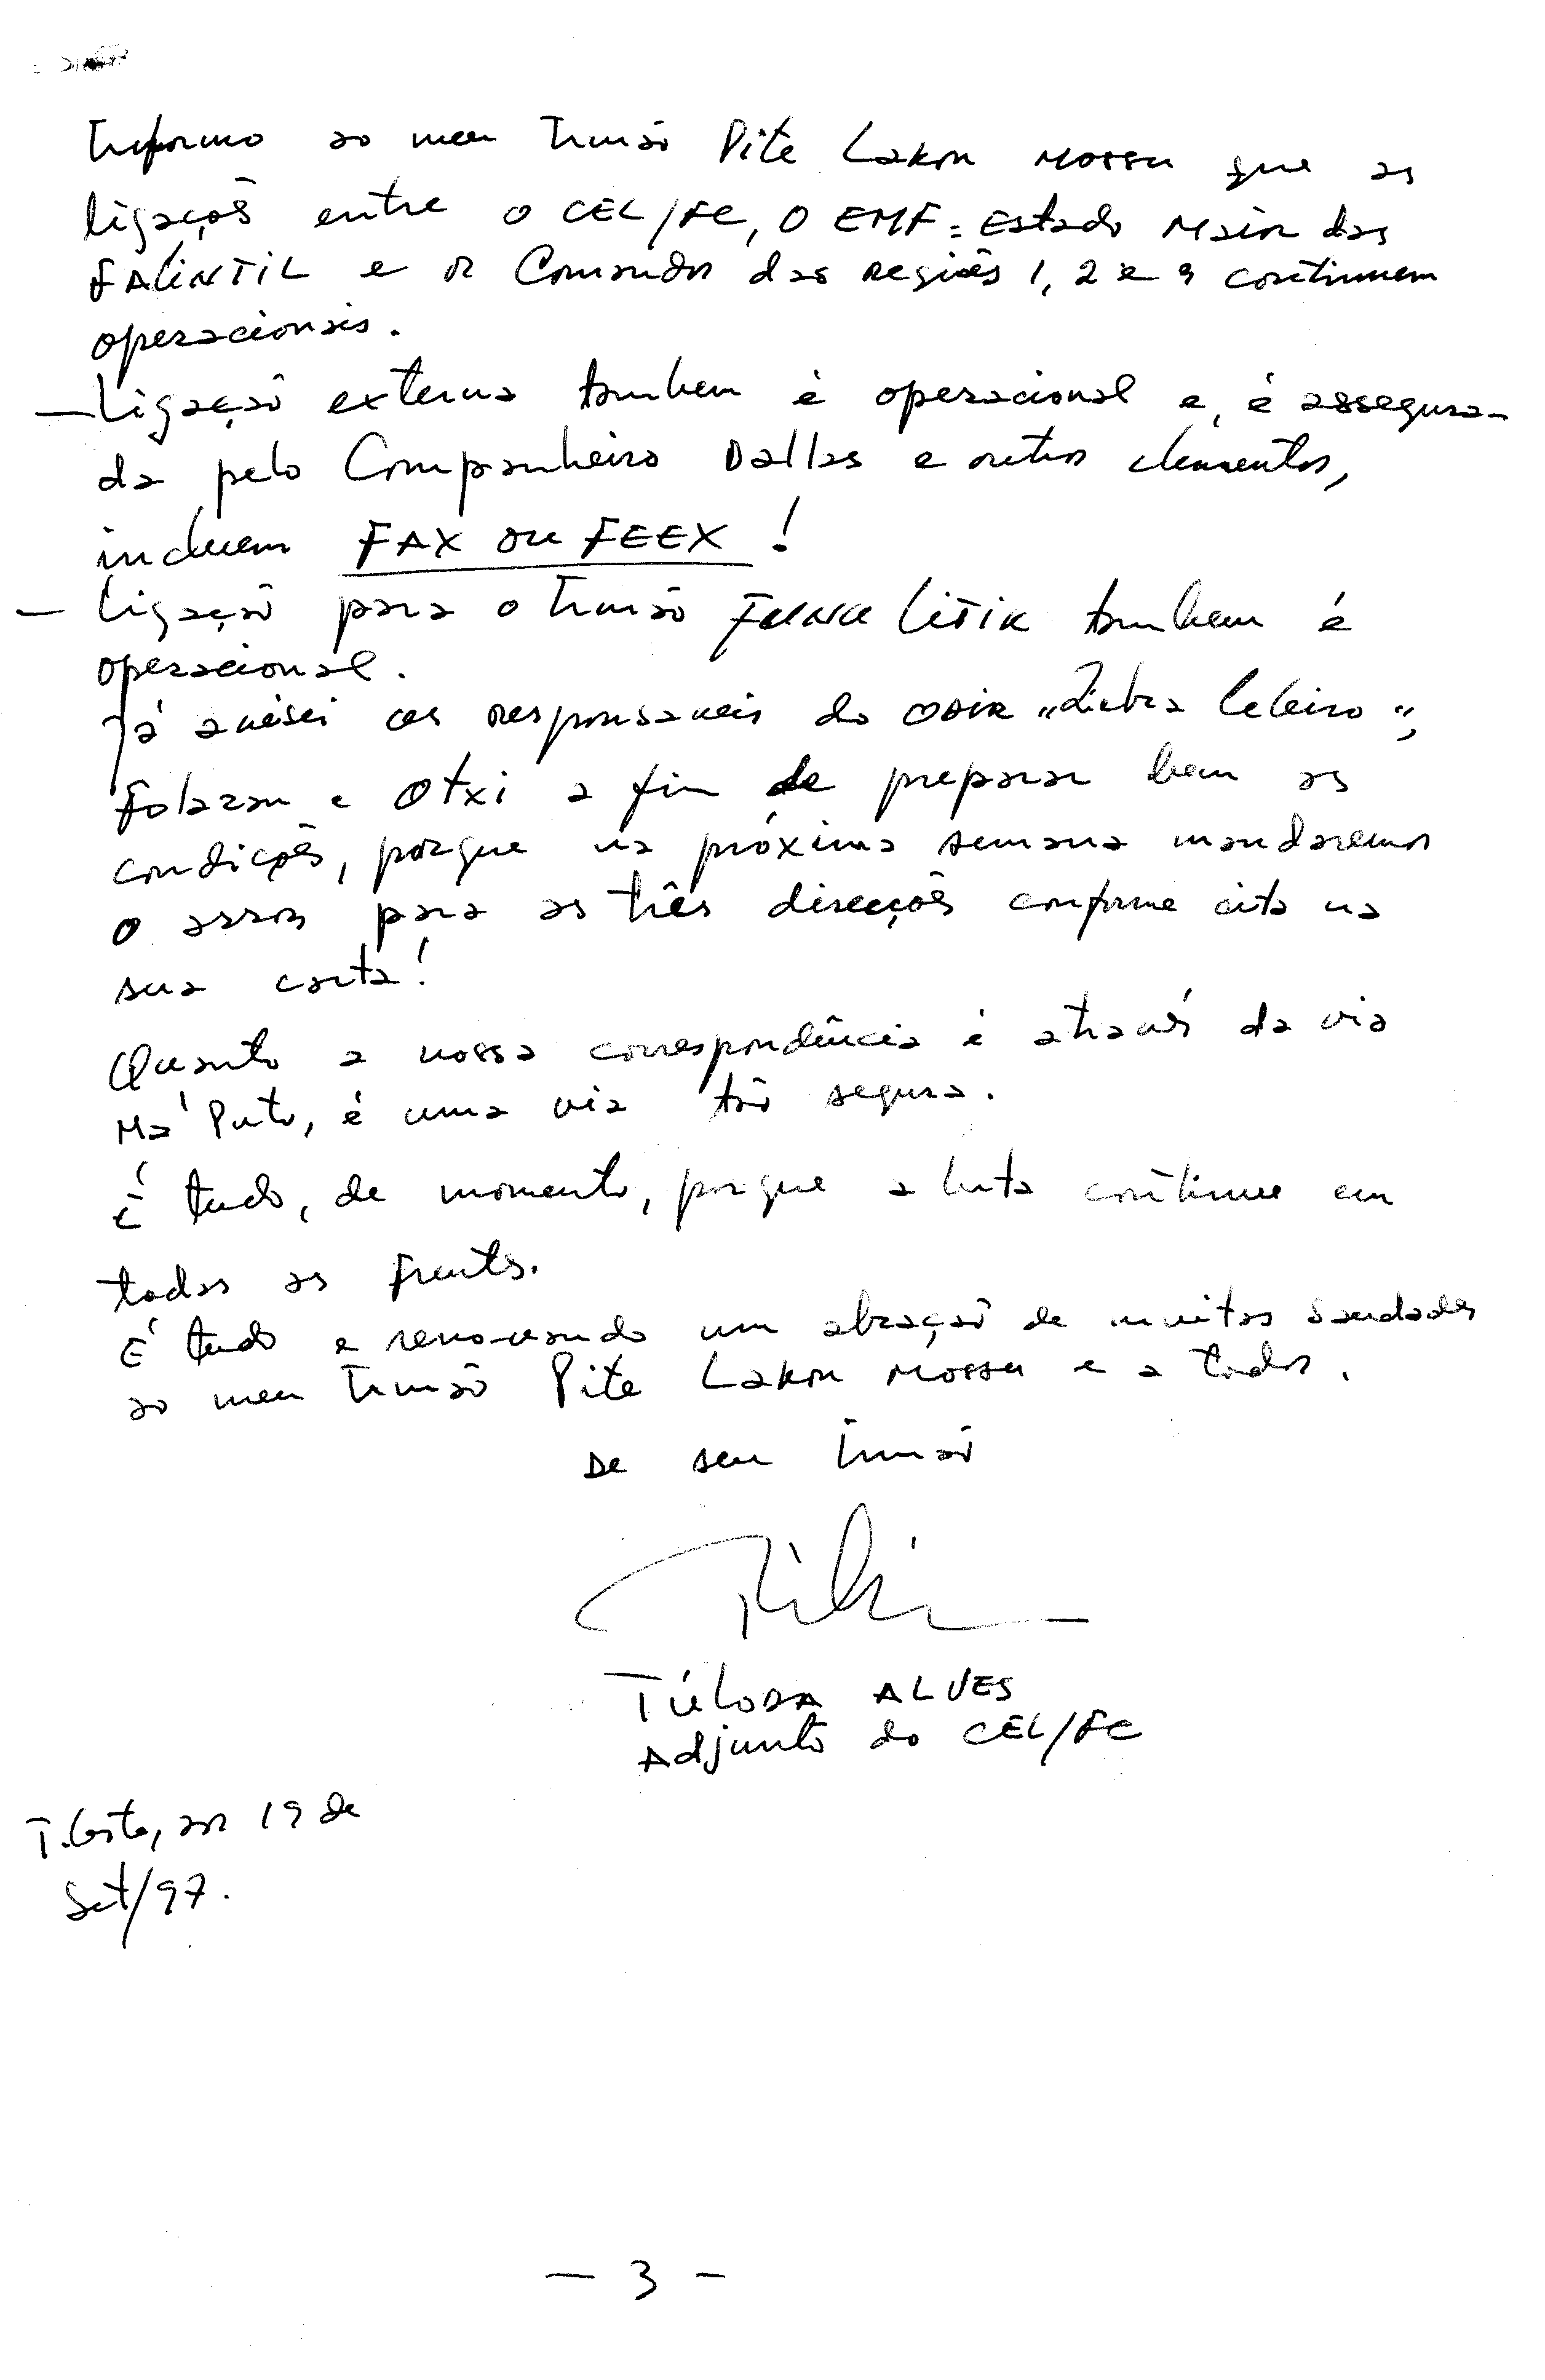 Informo ao meu Irmão Pite Lakon Mossu que as
ligações entre o CEL/FC, o EMF = Estado Maior das
FALINTIL e os Comandos das Regiões 1, 2 e 3 continuem
operacionais.
— Ligação externa tambem é operacional e, é assegura-
da pelo Companheiro Dallas e outros elementos,
incluem FAX ou FEEX !
— Ligação para o Irmão Funu Litik tambem é
operacional.
Já avisei os responsaveis do ODIR "Diebra Leleiro",
Folaran e Otxi a fim de preparar bem as
condições, porque na próxima semana mandaremos
o assos para as três direcções conforme cita na
sua carta!
Quanto a nossa correspondência é através da via
Ma' Puto, é uma via tão segura.
É tudo, de momento, porque a luta continue em
todas as frentes.
É tudo e renovando um abração de muitas saudades
ao meu Irmão Pite Lakon Mossu e a todos.
De seu Irmão
TÚLODA ALVES
Adjunto do CEL/FC
T. Leste, aos 19 de
Set/97.
— 3 —